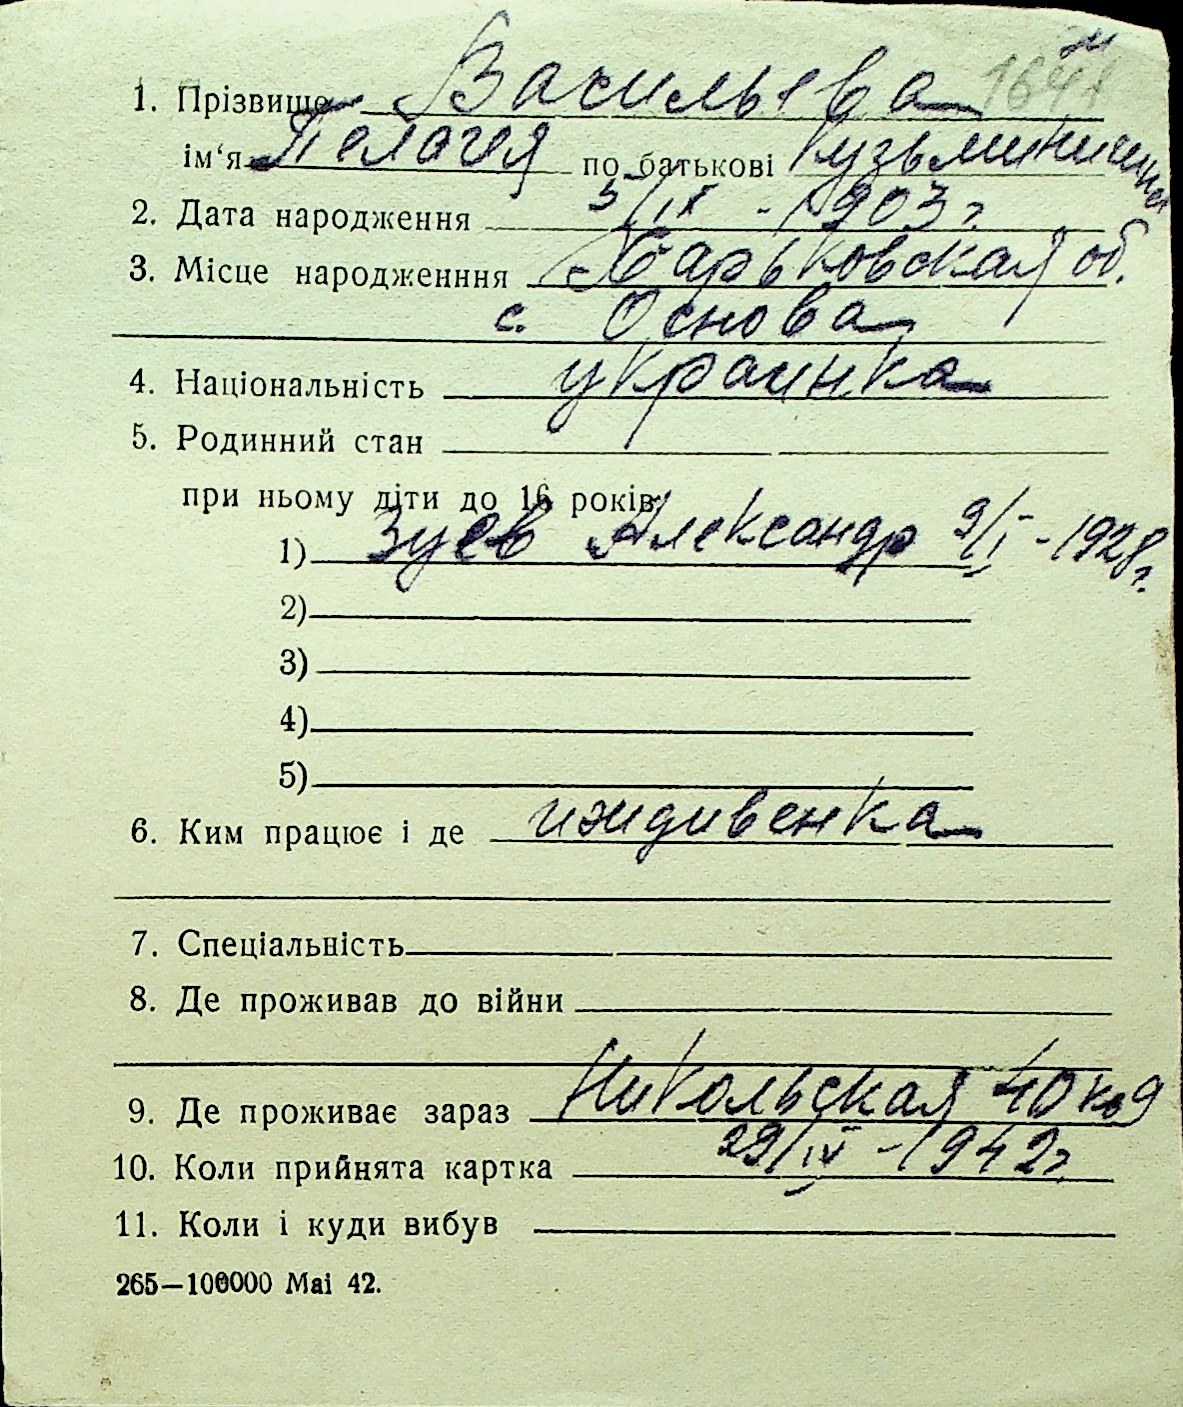 1641
1. Прізвище Васильева
ім‘я Пелагея по батькові Кузьминична
2. Дата народження 3/IX - 1903 г.
3. Місце народженння Харьковская об.
с. Основа
4. Національність украинка
5. Родинний стан
при ньому діти до 16 років
1) Зуев Александр 9/I - 1928 г.
2)
3)
4)
5)
6. Ким працює і де иждивенка
7. Спеціальність
8. Де проживав до війни
9. Де проживає зараз Никольская 40 кв 9
10. Коли прийнята картка 29/IV - 1942 г.
11. Коли і куди вибув
265—100000 Mai 42.